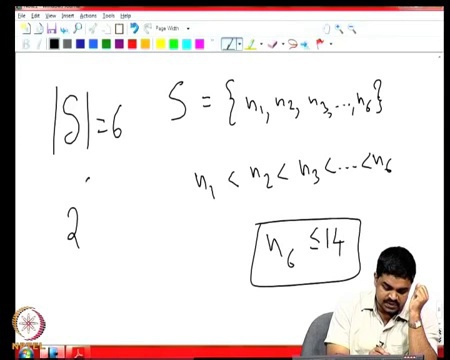 File Edit View Insert Actions Tools Help
Page Width
|S| = 6
S = {n₁, n₂, n₃, ..., n₆}
n₁ < n₂ < n₃ < ... < n₆
2
n₆ ≤ 14